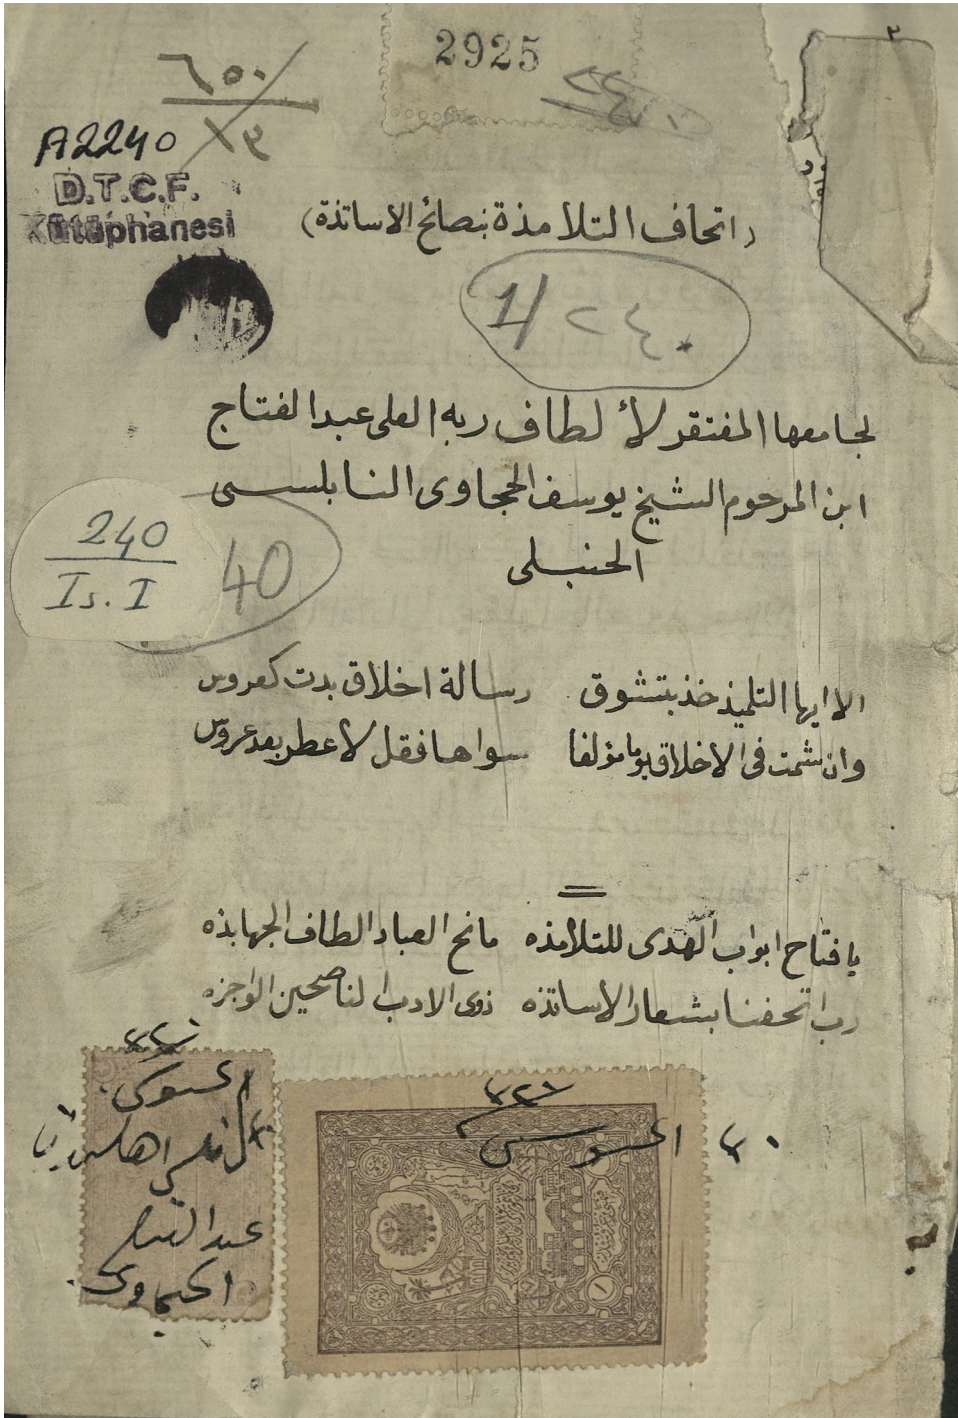 2925
٦٥٠
١٣
A2240
D.T.C.F.
Kütüphanesi
(اتحاف التلامذة بنصائح الاساتذة)
1/ ٢٤٠
لجامعها المفتقر لألطاف ربه العلى عبد الفتاح
ابن المرحوم الشيخ يوسف الحجاوى النابلسى
الحنبلى
240
Is. I
40
الا ايها التلميذ خذ بتشوق رسالة اخلاق بدت كعروس
وان شمت فى الاخلاق يوما مؤلفا سواها فقل لا عطر بعد عروس
يا فتاح ابواب الهدى للتلامذه مانح العباد الطاف الجهابذه
رب اتحفنا بشعار الاساتذه ذوى الادب الناصحين
عبد الفتاح
الحجاوى